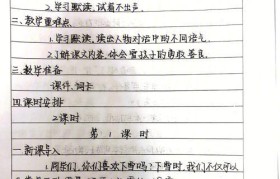 2.学习默读,试着不出声.
二、教学重难点
1.学习默读,读出人物对话中的不同语气.
2.了解课文内容,体会雪孩子的勇敢善良.
三、教学准备
课件、词卡
四、课时安排
2课时
第 1 课时
一、新课导入
1.同学们,你们喜欢下雪吗?下雪时,我们不仅可以